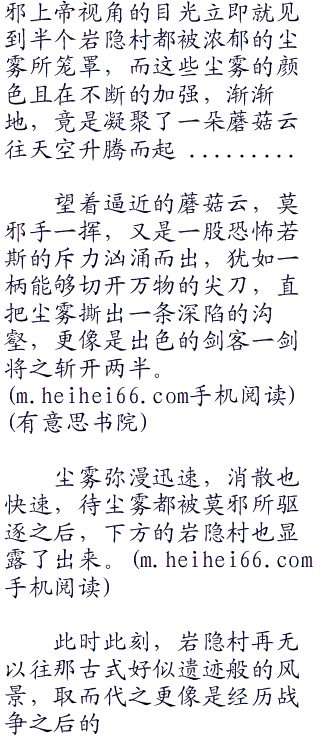 邪上帝视角的目光立即就见
到半个岩隐村都被浓郁的尘
雾所笼罩，而这些尘雾的颜
色且在不断的加强，渐渐
地，竟是凝聚了一朵蘑菇云
往天空升腾而起 .........
望着逼近的蘑菇云，莫
邪手一挥，又是一股恐怖若
斯的斥力汹涌而出，犹如一
柄能够切开万物的尖刀，直
把尘雾撕出一条深陷的沟
壑，更像是出色的剑客一剑
将之斩开两半。
(m.heihei66.com手机阅读)
(有意思书院)
尘雾弥漫迅速，消散也
快速，待尘雾都被莫邪所驱
逐之后，下方的岩隐村也显
露了出来。(m.heihei66.com
手机阅读)
此时此刻，岩隐村再无
以往那古式好似遗迹般的风
景，取而代之更像是经历战
争之后的